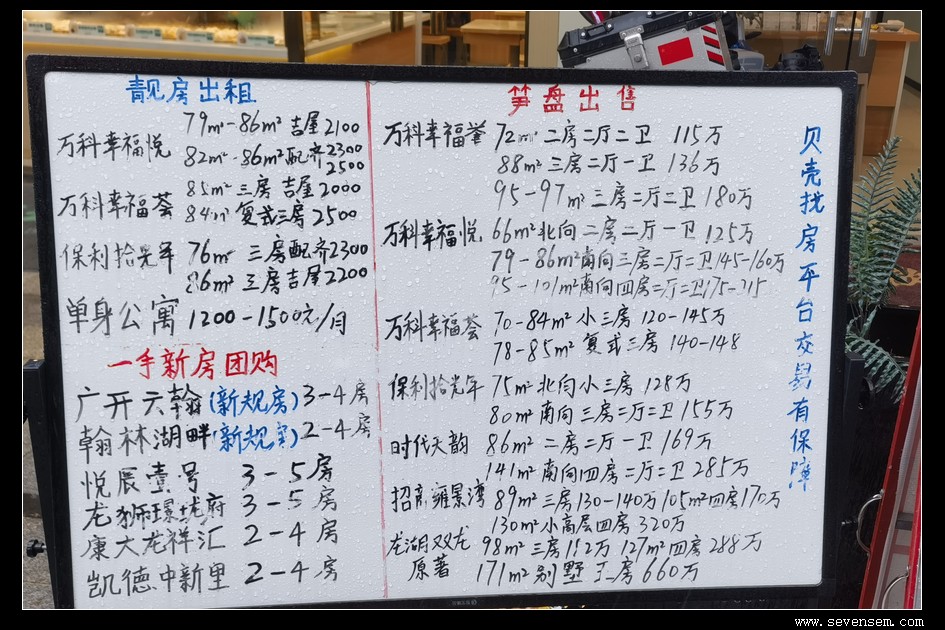 靓房出租
79m²-86m² 吉屋2100
万科幸福悦
82m²-86m²配齐2300
2500
85m² 三房 吉屋2000
万科幸福荟
84m² 复式三房2500
保利拾光年 76m² 三房配齐2300
86m² 三房吉屋2200
单身公寓 1200-1500元/月
一手新房团购
广开云翰(新规房) 3-4房
翰林湖畔(新规室) 2-4房
悦辰壹号 3-5房
龙狮璟珑府 3-5房
康大龙祥汇 2-4房
凯德中新里 2-4房
笋盘出售
万科幸福誉 72m² 二房二厅二卫 115万
88m² 三房二厅一卫 136万
95-97m² 三房二厅二卫 180万
万科幸福悦 66m²北向 二房二厅一卫 125万
79-86m²南向三房二厅二卫145-160万
95-101m²南向四房二厅二卫175-215
万科幸福荟 70-84m² 小三房 120-145万
78-85m² 复式三房 140-148
保利拾光年 75m² 北向小三房 128万
80m² 南向三房二厅二卫 155万
时代天韵 86m² 二房二厅一卫 169万
141m² 南向四房二厅二卫 285万
招商雍景湾 89m² 三房130-140万 105m²四房170万
130m² 小高层四房 320万
龙湖双龙 98m² 三房 112万 127m² 四房 288万
原著 171m² 别墅 房 660万
贝壳找房平台交易有保障
www.sevensem.com